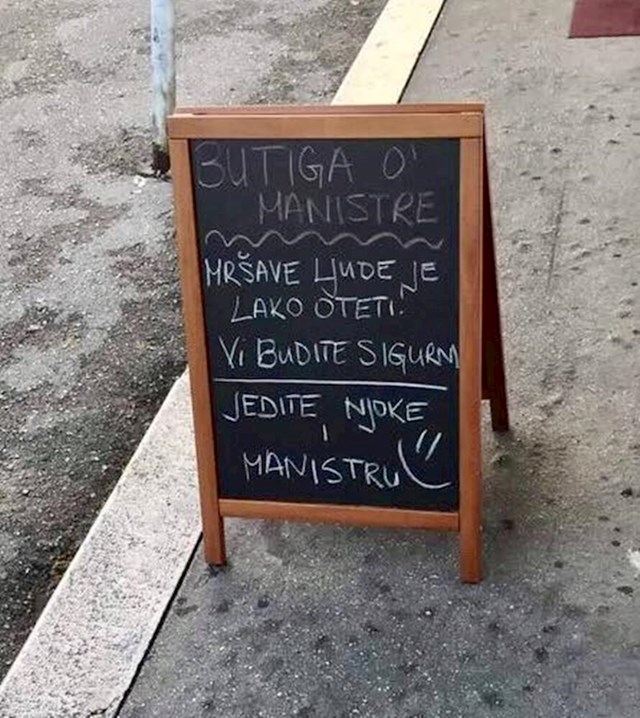 BUTIGA O'
MANISTRE
MRŠAVE LJUDE JE
LAKO OTETI!
Vi BUDITE SIGURNI
JEDITE NJOKE
I
MANISTRU